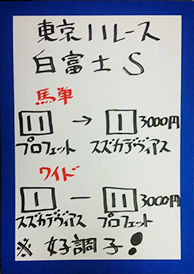 東京11レース
白富士S
馬単
11 → 1 3000円
プロフェット スズカデヴィアス
ワイド
1 ー 11 3000円
スズカデヴィアス プロフェット
※ 好調子!